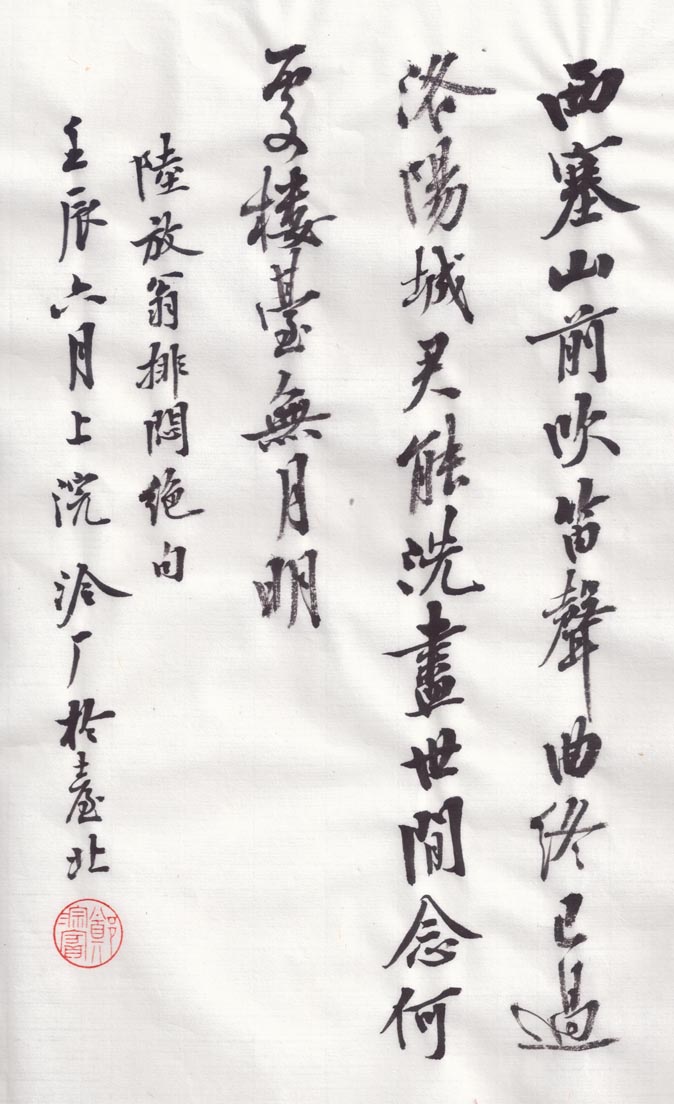 西塞山前吹笛聲曲終已過
洛陽城君能洗盡世間念何
處樓臺無月明
陸放翁排悶絕句
壬辰六月上浣 洽厂於臺北